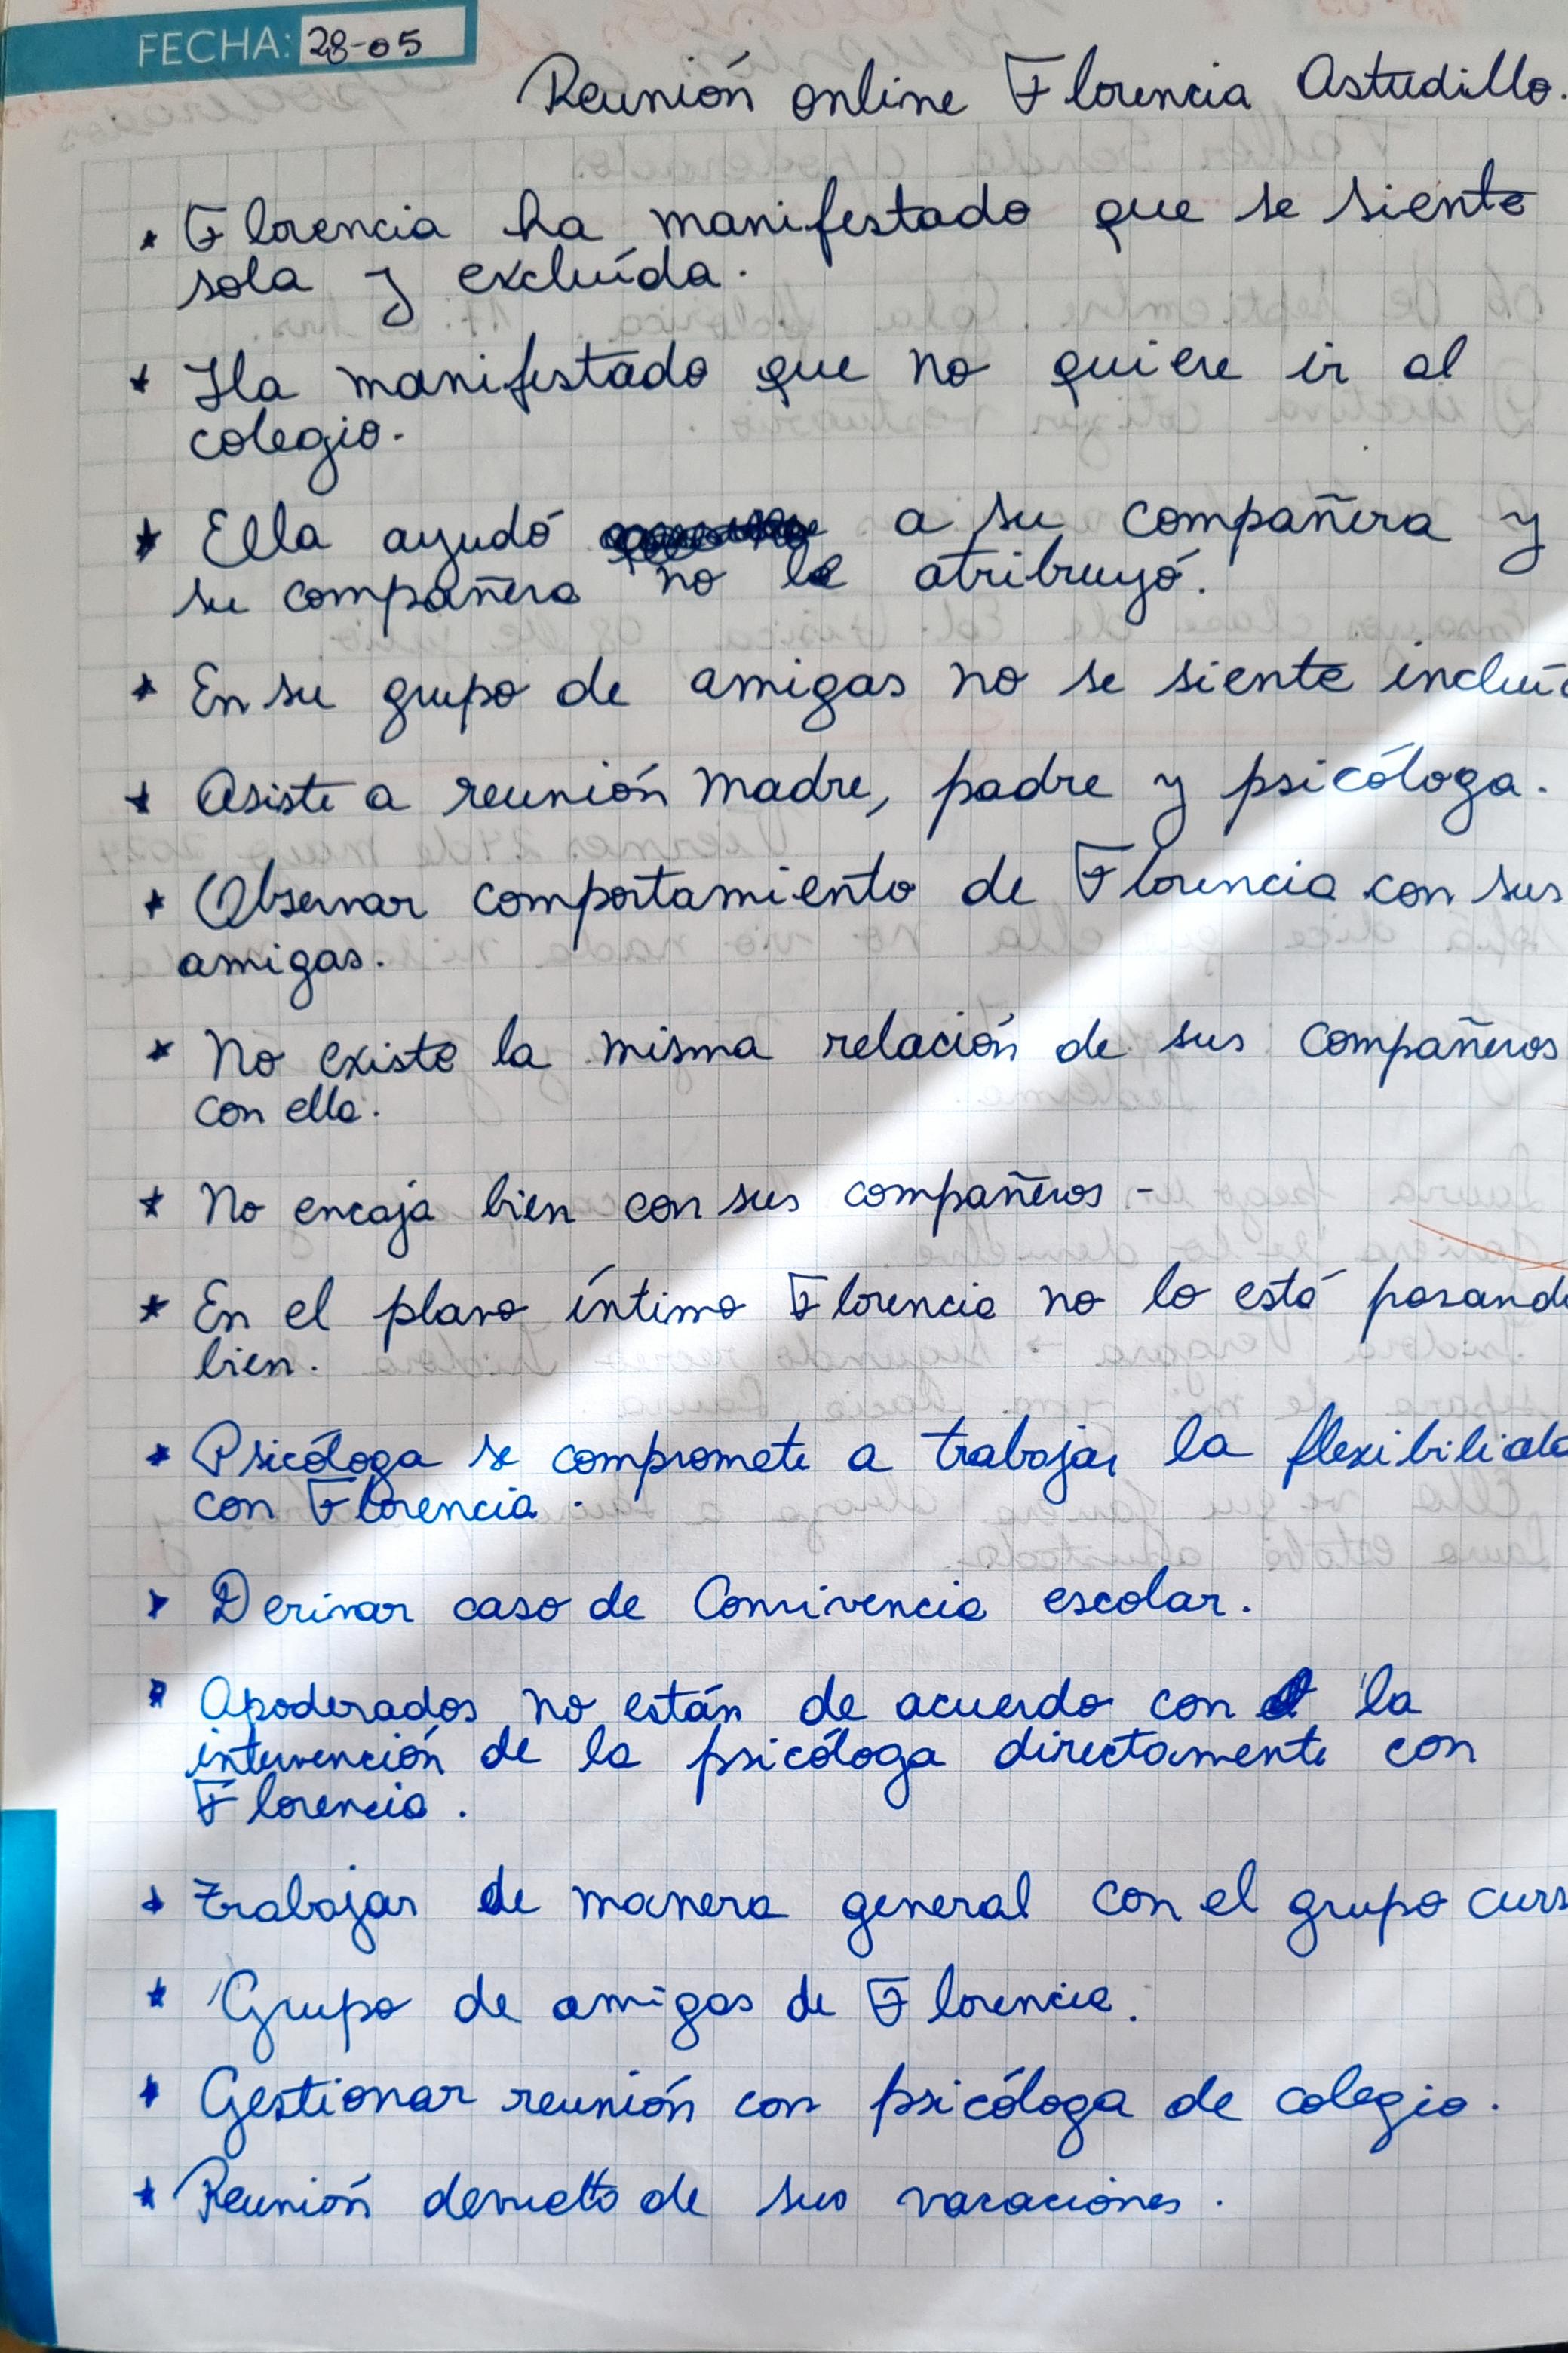 FECHA: 28-05
Reunión online Florencia Astudillo.
* Florencia ha manifestado que se siente
sola y excluída.
* Ha manifestado que no quiere ir al
colegio.
* Ella ayudó a su compañera y
su compañera no le atribuyó.
* En su grupo de amigas no se siente incluí
* Asiste a reunión madre, padre y psicóloga.
* Observar comportamiento de Florencia con sus
amigas.
* No existe la misma relación de sus compañeros
con ella.
* No encaja bien con sus compañeros -
* En el plano íntimo Florencia no lo está pasando
bien.
* Psicóloga se compromete a trabajar la flexibilida
con Florencia.
* Derivar caso de Convivencia escolar.
* Apoderados no están de acuerdo con la
intervención de la psicóloga directamente con
Florencia.
* Trabajar de manera general con el grupo curs
* Grupo de amigas de Florencia.
* Gestionar reunión con psicóloga de colegio.
* Reunión devuelta de sus vacaciones.